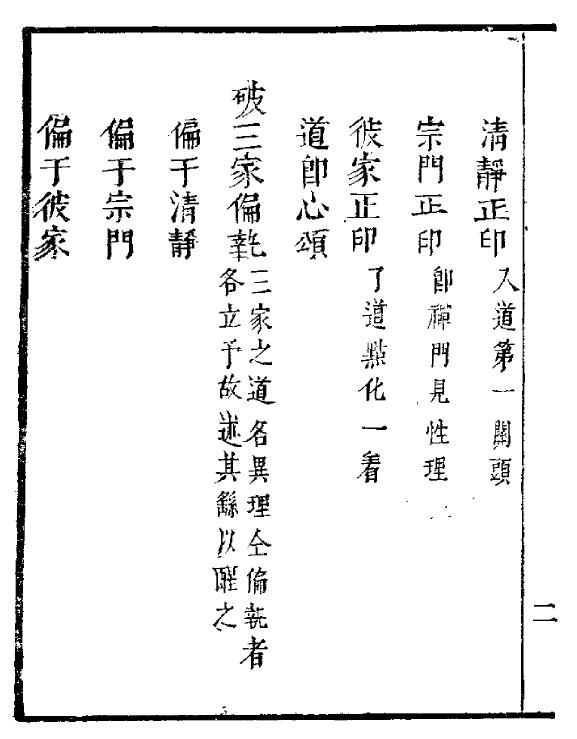 清靜正印 入道第一關頭
宗門正印 即禪門見性理
彼家正印 了道點化一着
道即心頌
破三家偏執 三家之道名異理仝偏執者
各立予故述其繇以醒之
偏于清靜
偏于宗門
偏于彼家
二